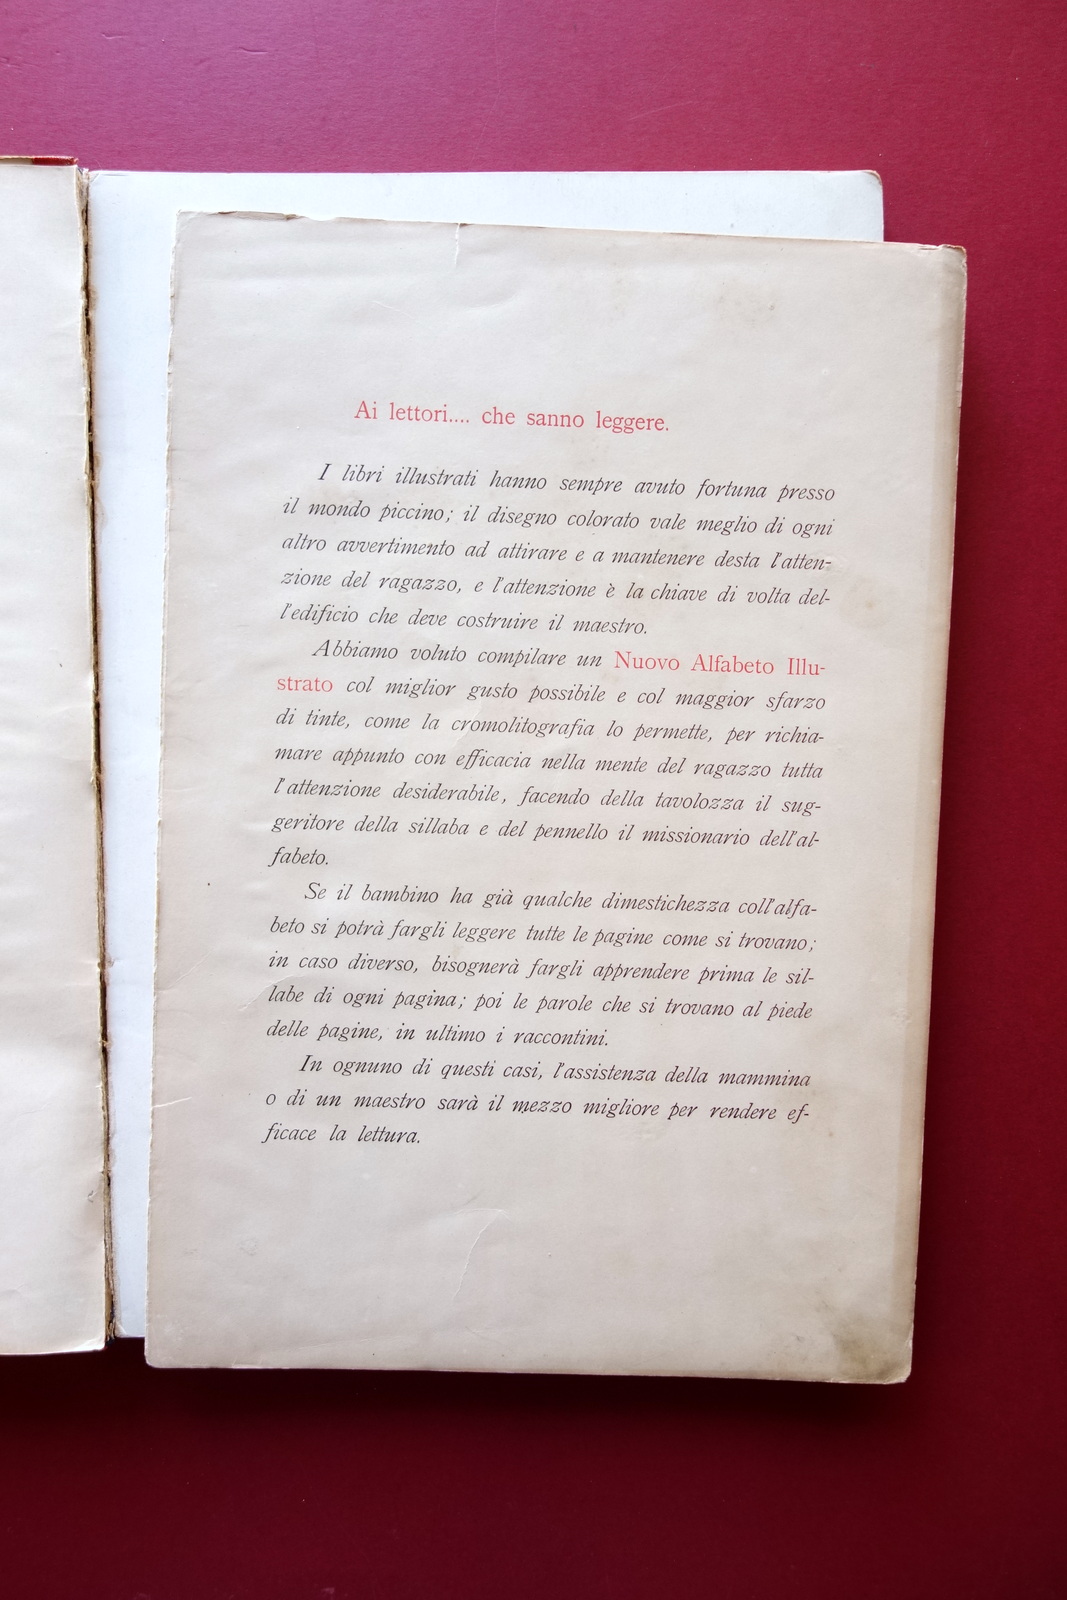 Ai lettori.... che sanno leggere.
I libri illustrati hanno sempre avuto fortuna presso
il mondo piccino; il disegno colorato vale meglio di ogni
altro avvertimento ad attirare e a mantenere desta l'atten-
zione del ragazzo, e l'attenzione è la chiave di volta del-
l'edificio che deve costruire il maestro.
Abbiamo voluto compilare un Nuovo Alfabeto Illu-
strato col miglior gusto possibile e col maggior sfarzo
di tinte, come la cromolitografia lo permette, per richia-
mare appunto con efficacia nella mente del ragazzo tutta
l'attenzione desiderabile, facendo della tavolozza il sug-
geritore della sillaba e del pennello il missionario dell'al-
fabeto.
Se il bambino ha già qualche dimestichezza coll'alfa-
beto si potrà fargli leggere tutte le pagine come si trovano;
in caso diverso, bisognerà fargli apprendere prima le sil-
labe di ogni pagina; poi le parole che si trovano al piede
delle pagine, in ultimo i raccontini.
In ognuno di questi casi, l'assistenza della mammina
o di un maestro sarà il mezzo migliore per rendere ef-
ficace la lettura.